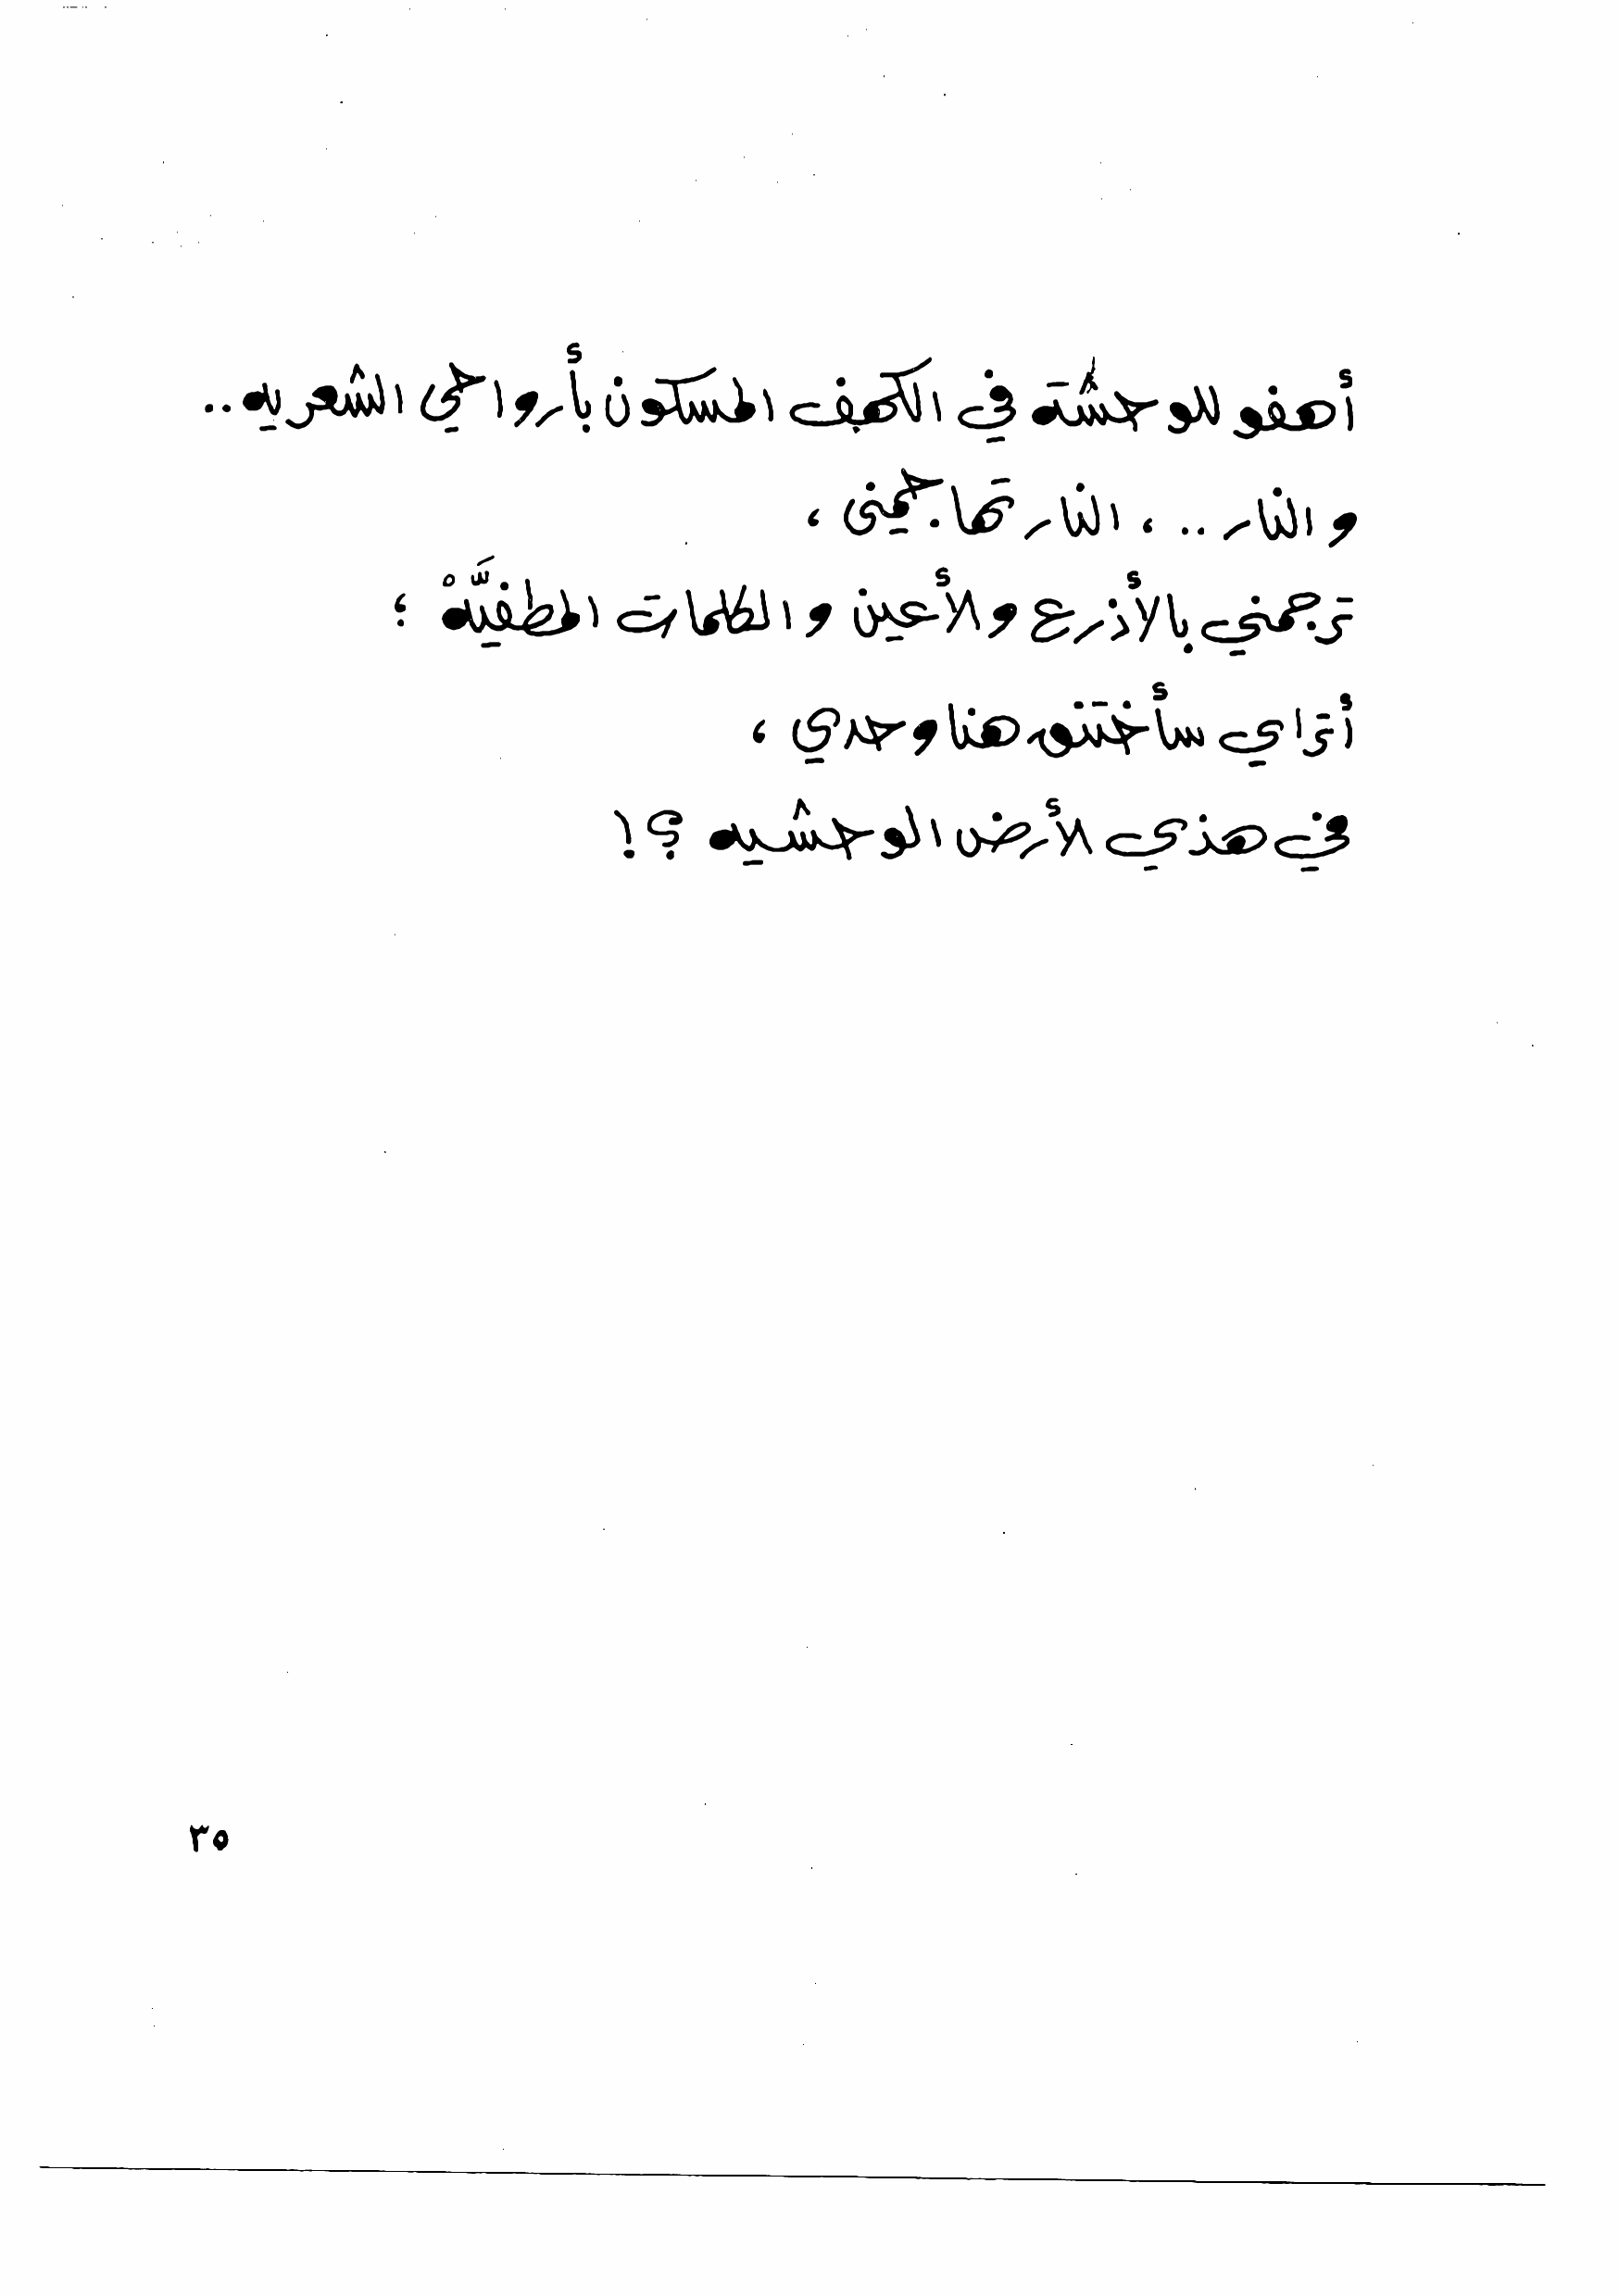 أهفو للوحشة في الكهف المسكون بأرواحي الشعريه..
والنار..، النار تهاجمني،
ترجمني بالأذرع والأعين والكلمات المطفيَّهْ؛
أتراي سأختنق هنا وحدي،
في هذي الأرض الوحشيه؟!
٣٥